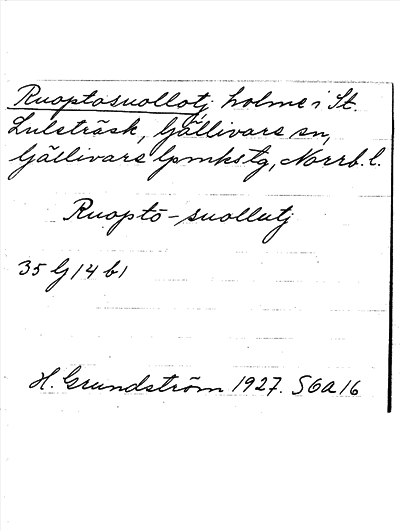 Ruoptosuollotj, holme i St.
Lulsträsk, Gällivare sn,
Gällivare lpmkstg, Norrb. l.
Ruopto-suollutj
35 G 14 b1
H. Grundström 1927. S6a16